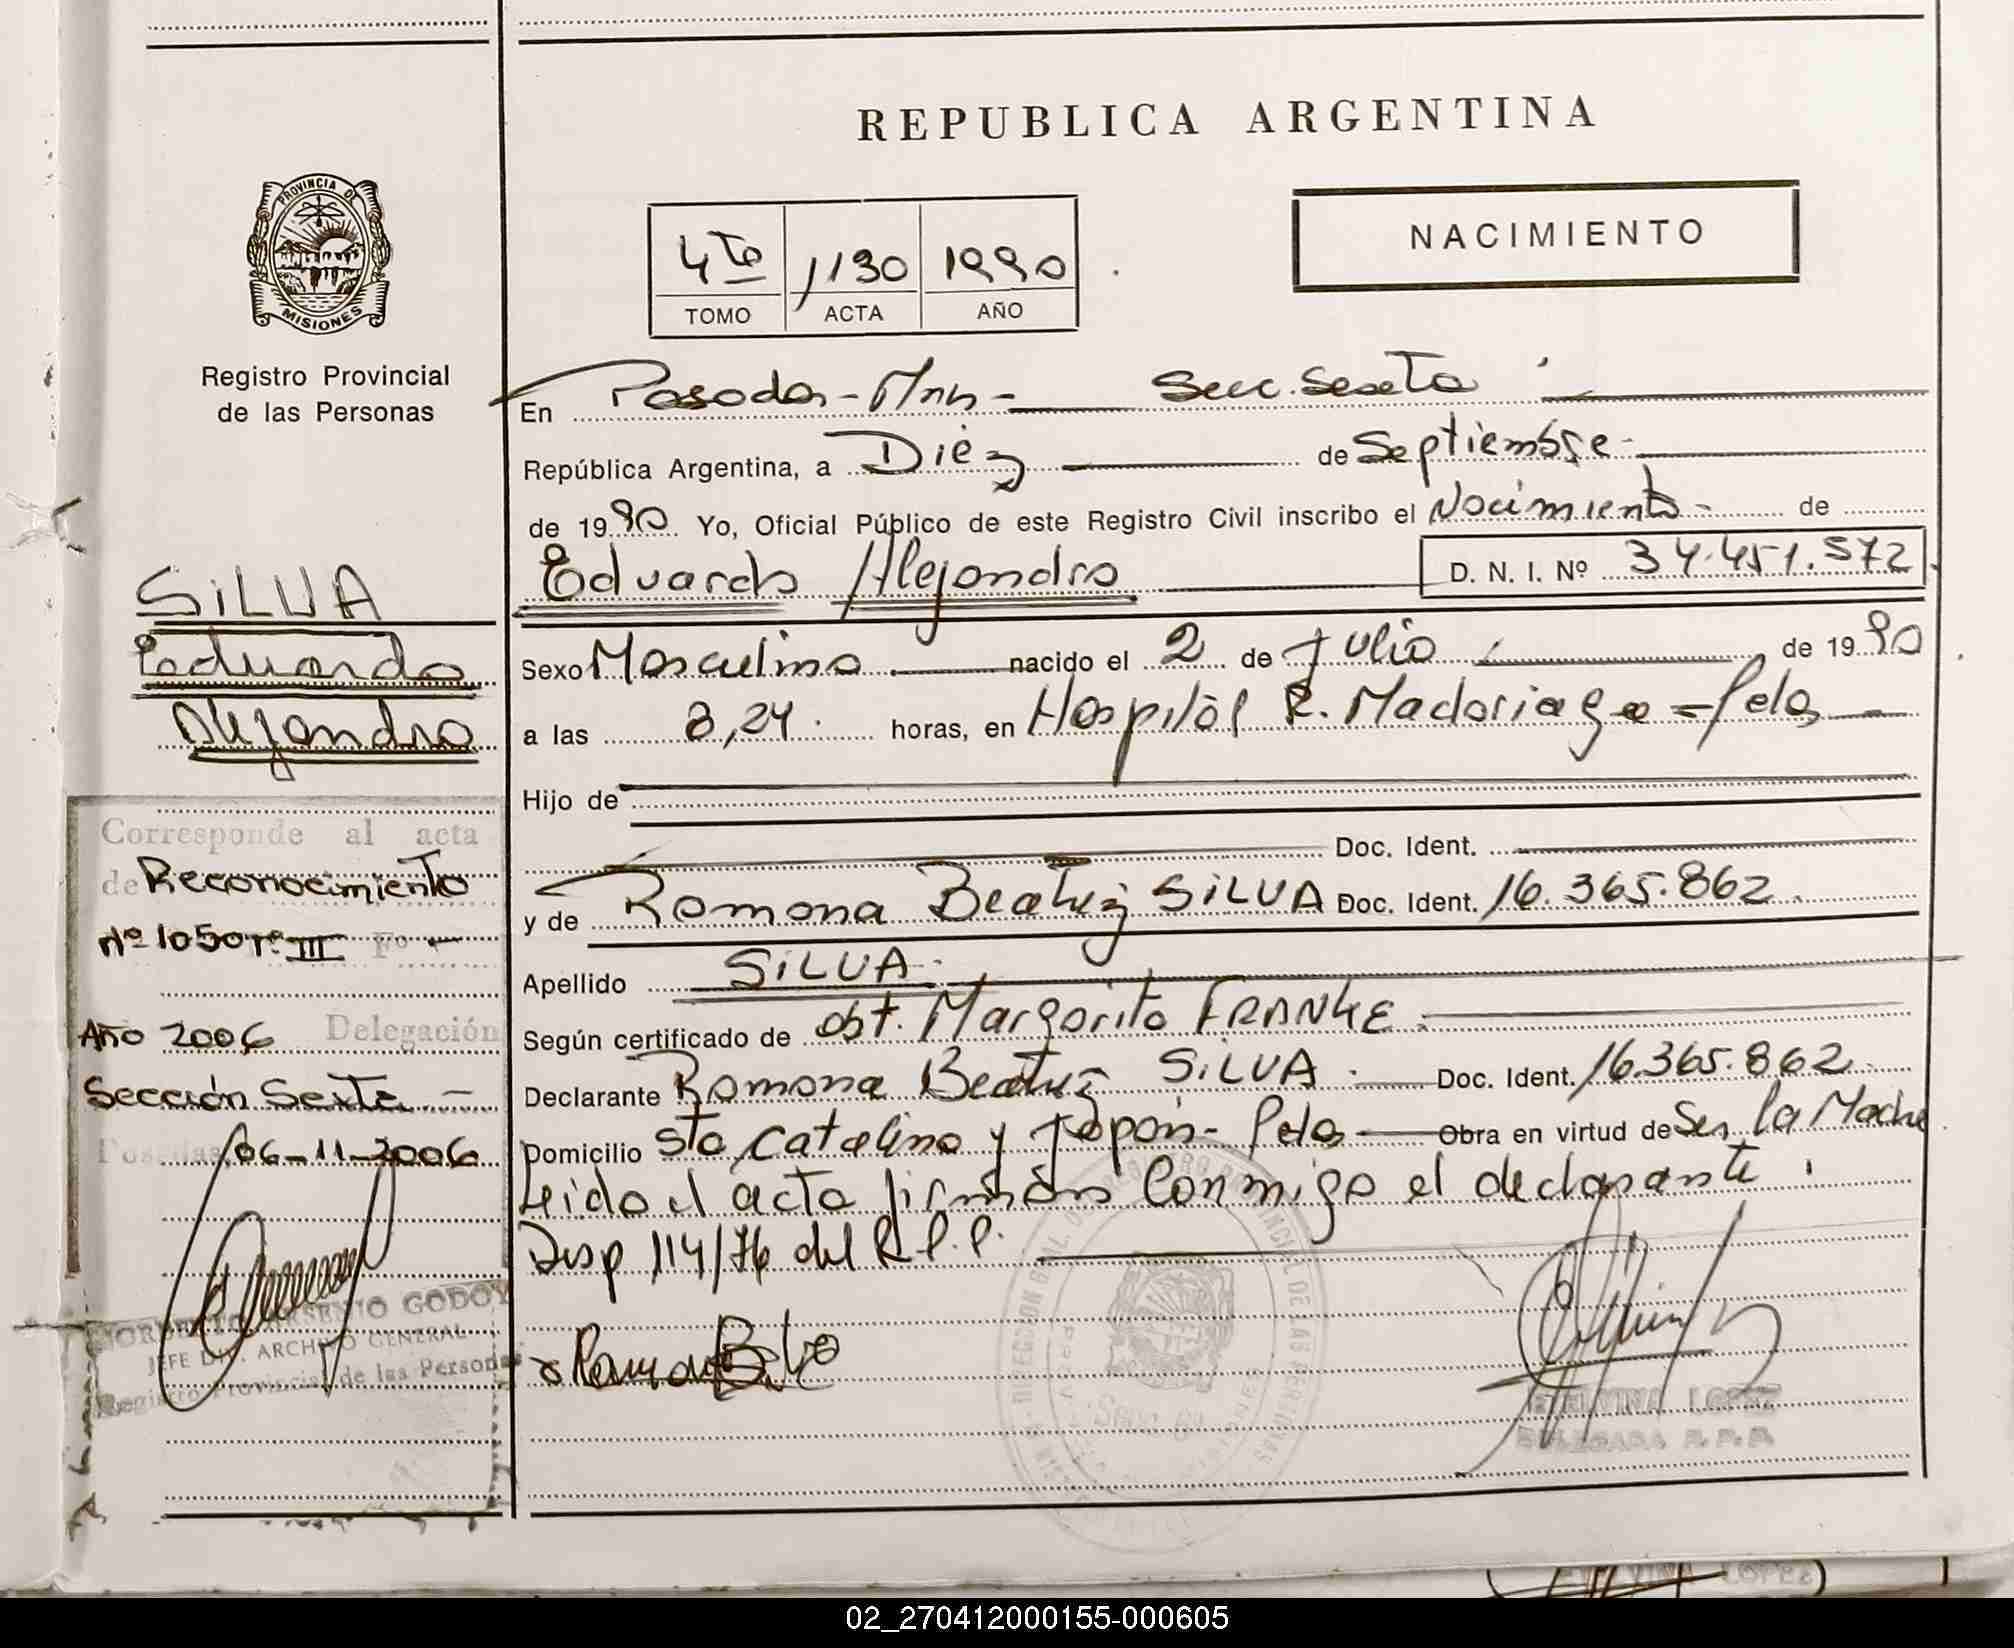 REPUBLICA ARGENTINA
PROVINCIA DE
MISIONES
Registro Provincial
de las Personas
4to 1130 1990
TOMO ACTA AÑO
NACIMIENTO
En Posadas-Mns- Secc. Sexta
República Argentina, a Diez de Septiembre-
de 1990 Yo, Oficial Público de este Registro Civil inscribo el Nacimiento- de
Eduardo Alejandro D. N. I. Nº 34.451.572
Sexo Masculino nacido el 2 de Julio de 1990
a las 8,24. horas, en Hospital R. Madariaga - Pdas
Hijo de
Doc. Ident.
y de Ramona Beatriz SILVA Doc. Ident. 16.365.862.
Apellido SILVA.
Según certificado de obt. Margarita FRANKE.
Declarante Ramona Beatriz SILVA. Doc. Ident. 16.365.862.
Domicilio Sta Catalina y Japón- Pdas Obra en virtud de Ser la Madre
Leido el acta firman conmigo el declarante.
Disp 114/76 del R.P.P.
SILVA
Eduardo
Alejandro
Corresponde al acta
de Reconocimiento
nº 1050 Tº III Fº -
Año 2006 Delegación
Sección Sexta -
Posadas, 06-11-2006
ARSENIO GODOY
JEFE ARCHIVO GENERAL
Registro Provincial de las Personas
LOPEZ
DELEGADA R.P.P.
LOPEZ
02_270412000155-000605